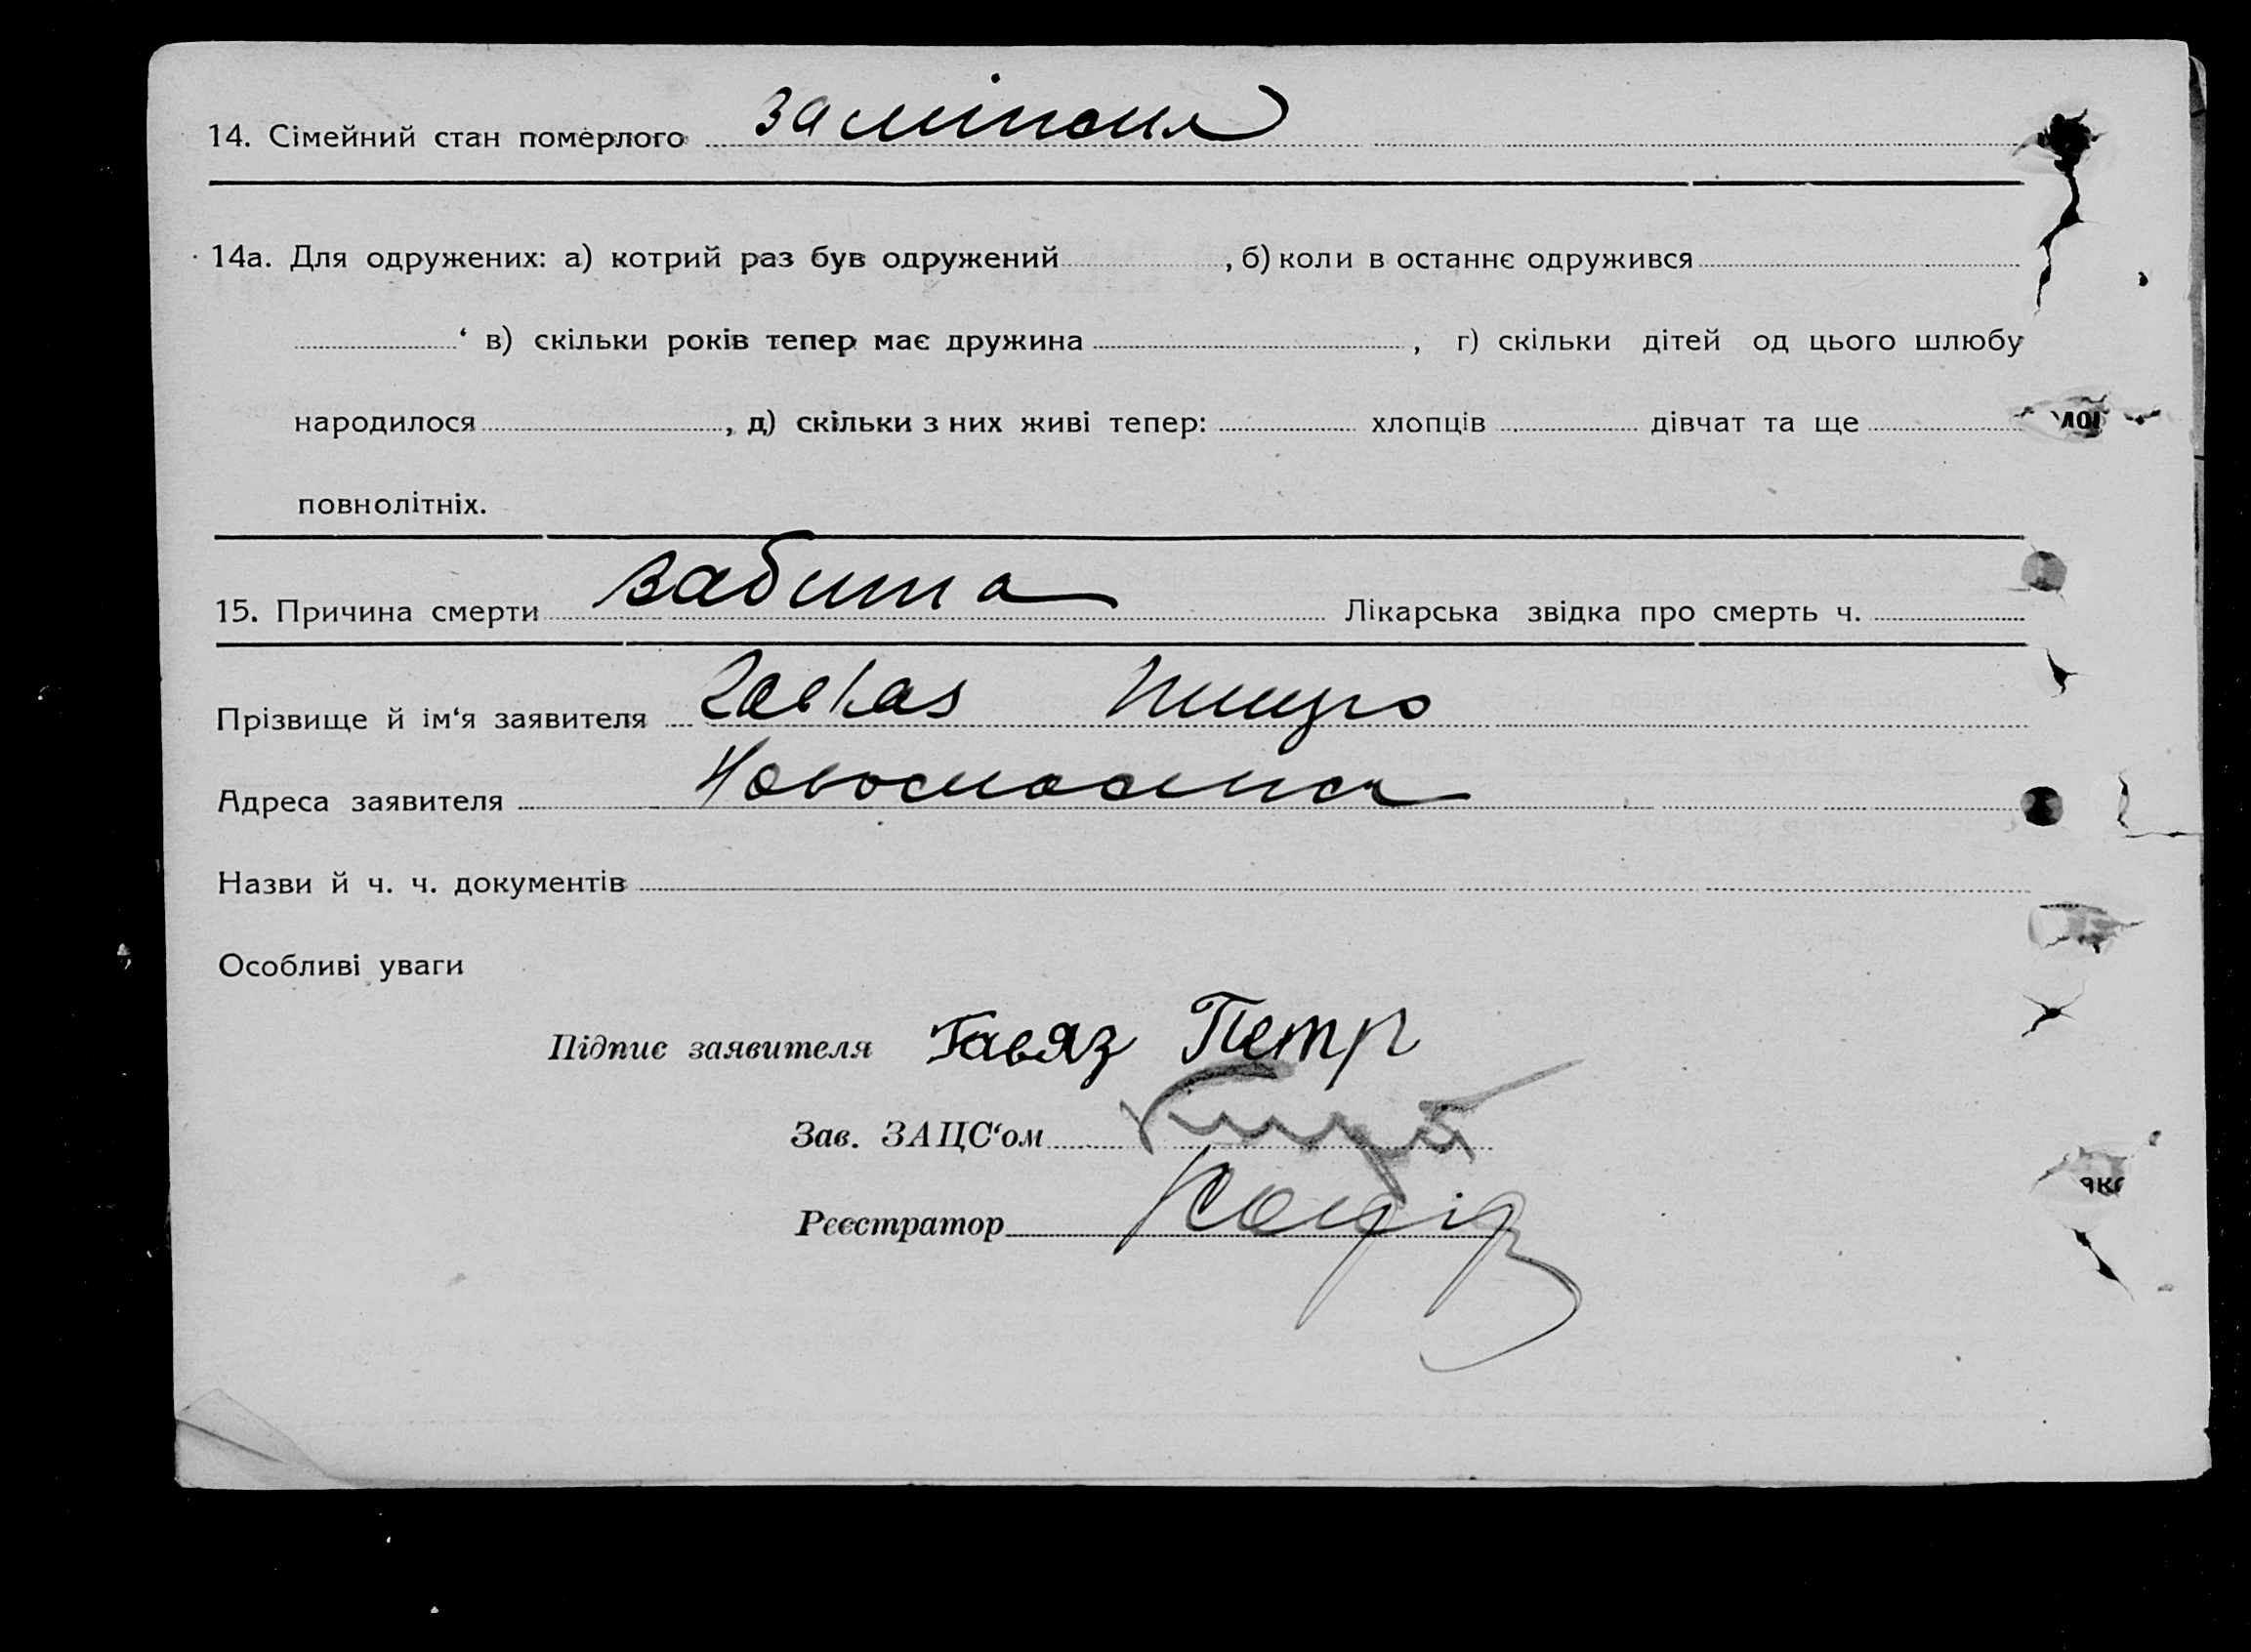 14. Сімейний стан померлого заміжня
14а. Для одружених: а) котрий раз був одружений , б) коли в останнє одружився
‘ в) скільки років тепер має дружина , г) скільки дітей од цього шлюбу
народилося , д) скільки з них живі тепер: хлопців дівчат та ще
повнолітніх.
15. Причина смерти забита Лікарська звідка про смерть ч.
Прізвище й ім‘я заявителя
Адреса заявителя
Назви й ч. ч. документів
Особливі уваги
Підпис заявителя Гавяз Петр
Зав. ЗАЦС‘ом
Реєстратор